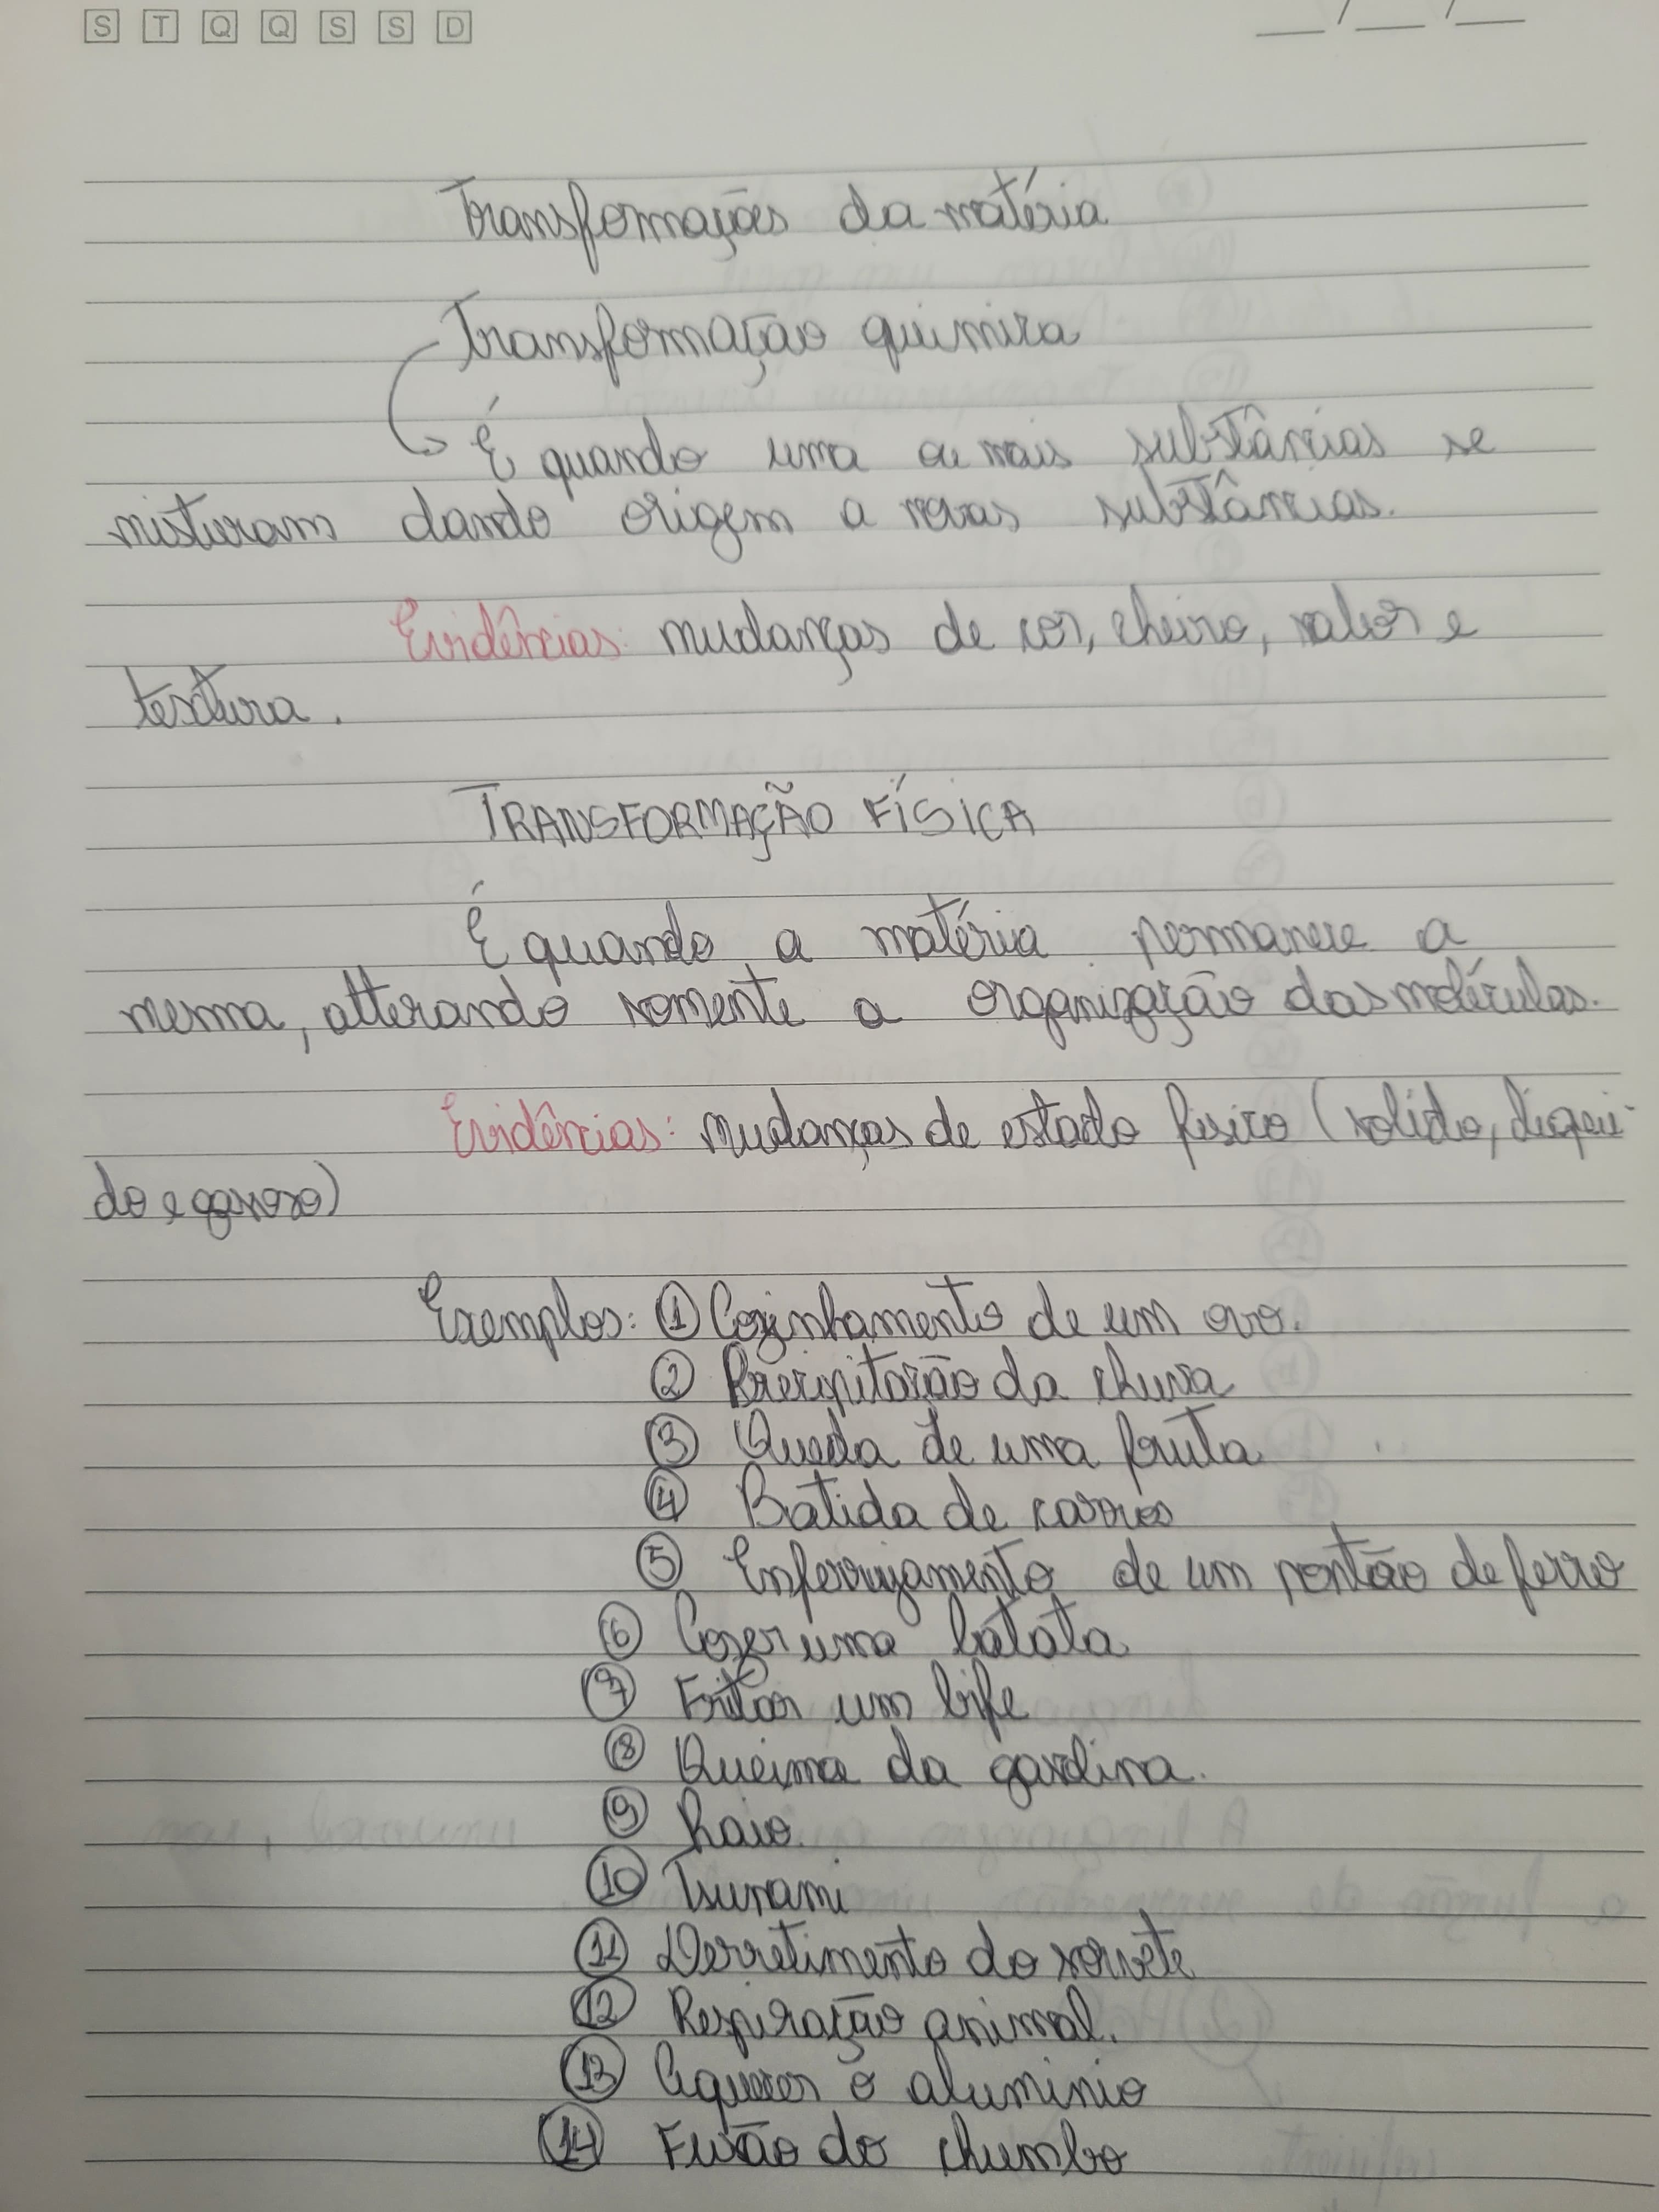 S T Q Q S S D
__/__/__
Transformações da matéria
Transformação quimica
É quando uma ou mais substâncias se
misturam dando origem a novas substâncias.
Evidências: mudanças de cor, cheiro, sabor e
textura.
TRANSFORMAÇÃO FÍSICA
É quando a matéria permanece a
mesma, alterando somente a organização das moléculas.
Evidências: mudanças de estado fisico (solido, liqui-
do e gasoso)
Exemplos: ① Cozinhamento de um ovo.
② Precipitação da chuva
③ Queda de uma fruta
④ Batida de carros
⑤ Enferrujamento de um pontão de ferro
⑥ Cozer uma batata
⑦ Fritar um bife
⑧ Queima da gasolina.
⑨ Raio.
⑩ Tsunami
⑪ Derretimento do sorvete
⑫ Respiração animal.
⑬ Aquecer o aluminio
⑭ Fusão do chumbo